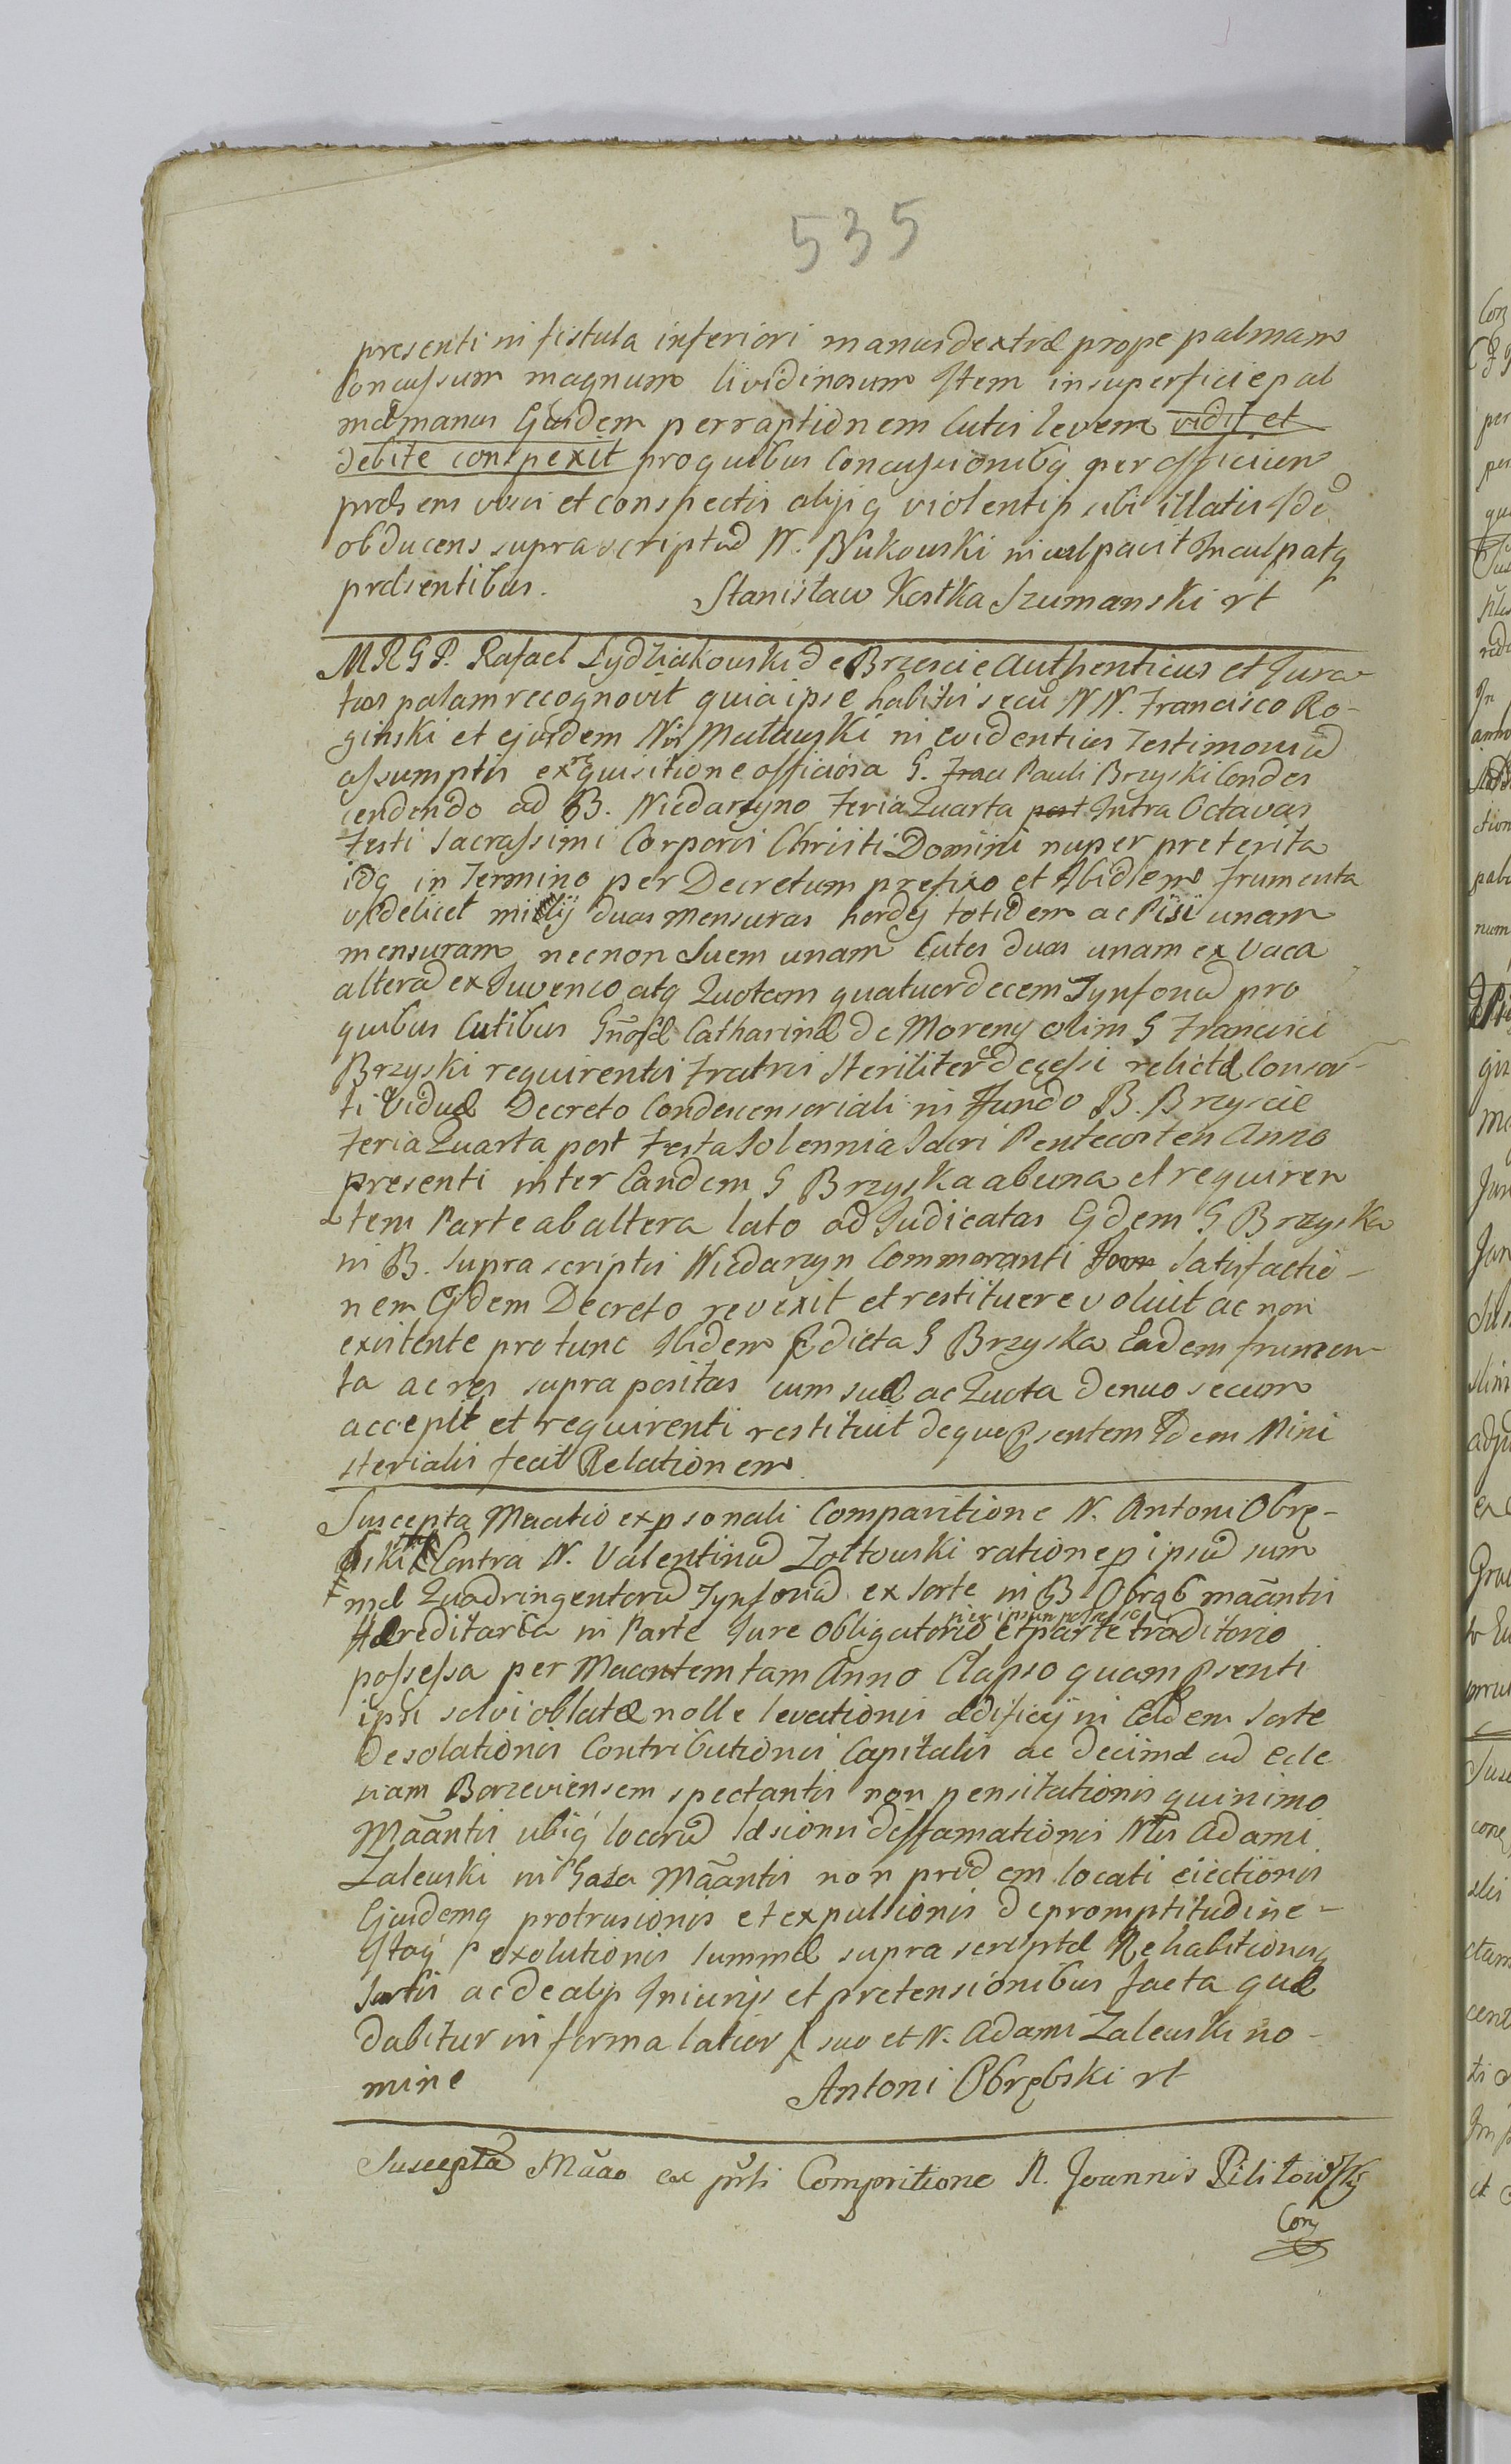 535
presenti in fistula inferiori manus dextræ prope palmam
Concussum magnum lividinosum Item in superficie pal
mæ manus Ejusdem perraptionem Cutis levem vidit et
debite conspexit pro quibus Concussionibq per officium
præsens visis et conspectis alijsq violentijs sibi illatis Ide
obducens supra scriptū N. Bukowski inculpavit Inculpatq
præsentibus. Stanisław Kostka Szumanski rt
MRGP. Rafael Lydziakowski de Brzescie Authenticus et Jura
tus palam recognovit quia ipse habitis secū NN. Francisco Ro-
ginski et ejusdem Nis Małauski in evidentius Testimoniū
assumptis ex requisitione officiosa G. Pauli Brzyski Condes
cendendo ad B. Niedarzyno Feria Quarta post Intra Octavas
Festi Sacrassimi Corporis Christi Domini nuper preterita
idq in Termino per Decretum prefixo et Ibidem frumenta
videlicet milij duas mensuras hordej totidem ac Pisi unam
mensuram necnon Suem unam Cutes duas unam ex Vaca
alterā ex Juvenco atq Quotam quatuordecem Tynfonū pro
quibus Cutibus Gnosæ Catharinæ de Moreny olim G Francisci
Brzyski requirentis Fratris Steriliter decessi relictæ Consor-
ti Viduæ Decreto Condescensoriali in Fundo B. Brzyscie
Feria Quarta post Festa Solennia Sacri Pentecosten Anno
presenti inter Eandem G Brzyska ab una et requiren
tem Parte ab altera lato adjudicatas Ejdem G Brzyska
in B. supra scriptis Niedarzyn Commoranti Satisfactio-
nem Ejdem Decreto revexit et restituere voluit ac non
existente pro tunc Ibidem Pdicta G Brzyska Eadem frumen-
ta ac res supra positas cum sue ac Quota denuo secum
accepit et requirenti restituit de quo Psentem Idem Mini
sterialis fecit Relationem
Suscepta Maatio ex psonali Comparitione N. Antoni Obrę-
bski Contra N. Valentinū Zołtowski ratione p ipsū sum
mæ Quadringentorū Tynfonū ex sorte in B Obręb maāntis
Hæreditaria in Parte Jure Obligatorio et parte traditorio
possessa per Maantem tam Anno Elapso quam Psenti
ipsi solvi oblatæ nolle levationis ædificij in Eadem Sorte
Desolationis Contributionis Capitalis ac decimæ ad Ecle
siam Barzeviensem spectantis non pensitationis quinimo
Maāntis ubiq locorū læsionis deffamationis Nlis Adami
Zaleuski in Maāntis non pridem locati eiectionis
Ejusdemq protrusionis et expulsionis de promptitudine-
Itaq p exolutionis summæ supra scriptæ Rehabitionisq
Sortis ac de alijs Iniurijs et pretensionibus facta quæ
dabitur in forma latior suo et N. Adami Zaleuski no-
mine Antoni Obrębski rt
Suscepta Māao ex prti Compritione N. Joannis Pilitowski
Con